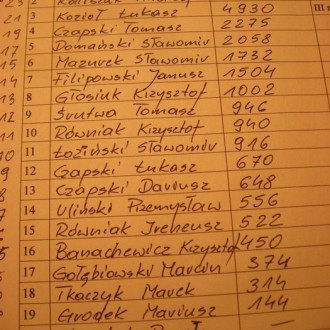 3 Kozieł Łukasz 4930
4 Czapski Tomasz 2275
5 Domański Sławomir 2058
6 Mazurek Sławomir 1732
7 Filipowski Janusz 1504
8 Głosiuk Krzysztof 1002
9 Tomasz 946
10 Równiak Krzysztof 940
11 Łoziński Sławomir 916
12 Gapski Łukasz 670
13 Czapski Dariusz 648
14 Uliński Przemysław 556
15 Równiak Ireneusz 522
16 Banachewicz Krzysztof 450
17 Gołąbiowski Marcin 374
18 Tkaczyk Marek 314
19 Grodek Mariusz 144